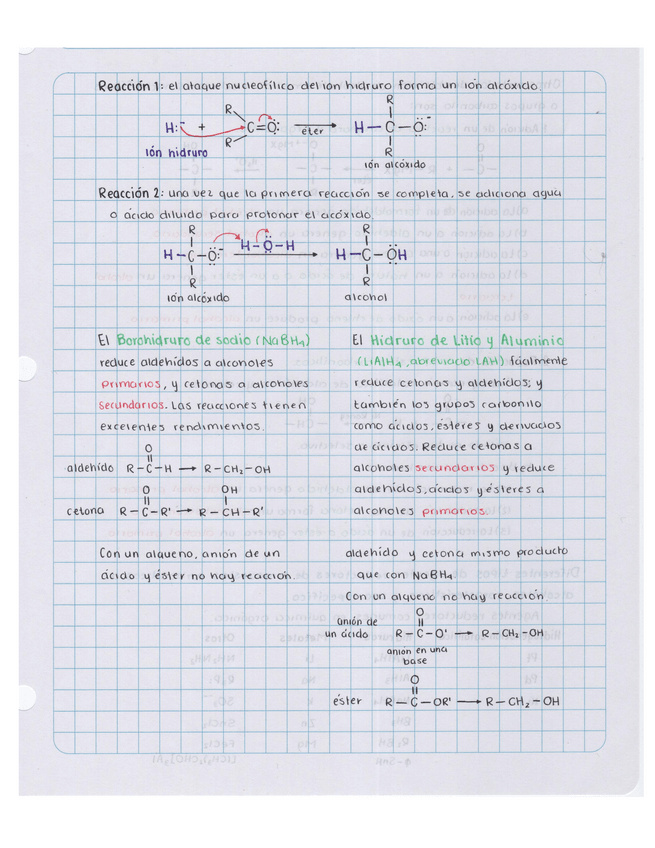 Reacción 1: el ataque nucleofílico del ion hidruro forma un ión alcóxido.
H:⁻ + R R C=Ö: éter → R H—C—Ö:⁻ R
ión hidruro
ión alcóxido
Reacción 2: una vez que la primera reacción se completa, se adiciona agua
o ácido diluido para protonar el acóxido.
R H—C—Ö:⁻ R H—Ö—H → R H—C—ÖH R
ión alcóxido alcohol
El Borohidruro de sodio (NaBH4)
reduce aldehídos a alcoholes
primarios, y cetonas a alcoholes
secundarios. Las reacciones tienen
excelentes rendimientos.
aldehído R—C—H → R—CH2—OH
O
cetona R—C—R' → R—CH—R'
O OH
Con un alqueno, anión de un
ácido y éster no hay reacción.
El Hidruro de Litio y Aluminio
(LiAlH4, abreviado LAH) fácilmente
reduce cetonas y aldehídos; y
también los grupos carbonilo
como ácidos, ésteres y derivados
de ácidos. Reduce cetonas a
alcoholes secundarios y reduce
aldehídos, ácidos y ésteres a
alcoholes primarios.
aldehído y cetona mismo producto
que con NaBH4.
Con un alqueno no hay reacción.
O
anión de
un ácido R—C—O' → R—CH2—OH
anión en una
base
O
éster R—C—OR' → R—CH2—OH